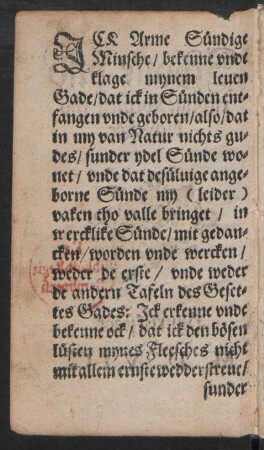 ICK Arme Sündige
Minsche / bekenne vnde
klage mynem leuen
Gade / dat ick in Sünden ent-
fangen vnde geboren / also / dat
in my van Natur nichts gu-
des / sunder ydel Sünde wo-
net / vnde dat desüluige ange-
borne Sünde my (leider)
vaken tho valle bringet / in
wercklike Sünde / mit gedan-
cken / worden vnde wercken /
weder de erste / vnde weder
de andern Tafeln des Geset-
tes Gades: Ick erkenne vnde
bekenne ock / dat ick den bösen
lüsten mynes Fleesches nicht
mit allem ernste wedderstreue /
sunder